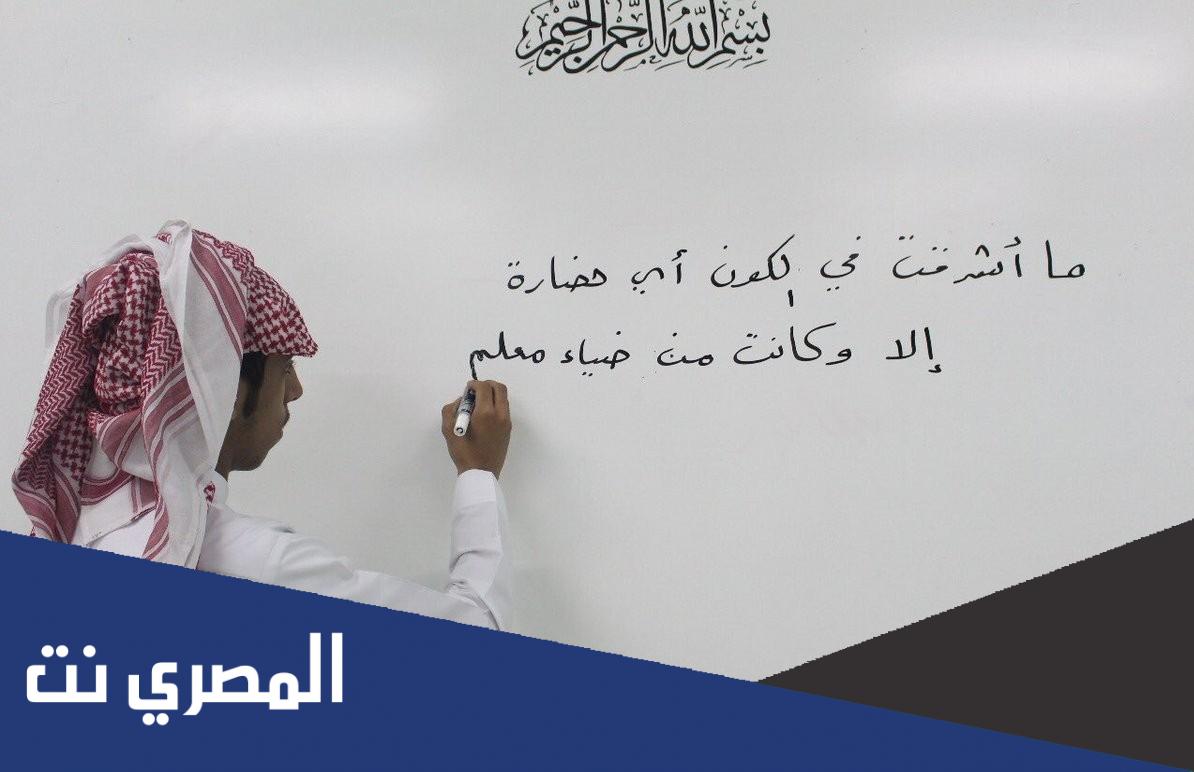 بسم الله الرحمن الرحيم
ما أشرقت في الكون أي حضارة
إلا وكانت من ضياء معلم
المصري نت